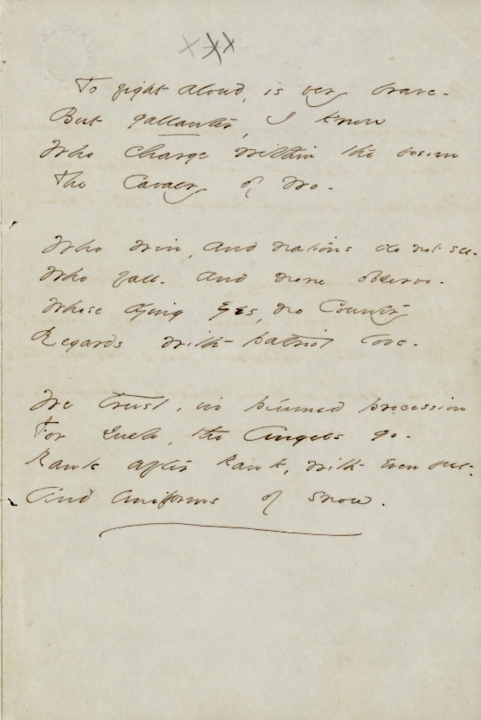 To fight aloud, is very brave -
But gallanter, I know
Who charge within the bosom
The Cavalry of Wo -
Who win, and nations do not see -
Who fall - and none observe -
Whose dying eyes, no Country
Regards with patriot love -
We trust, in plumed procession
For such, the Angels go -
Rank after Rank, with even feet -
And Uniforms of snow.